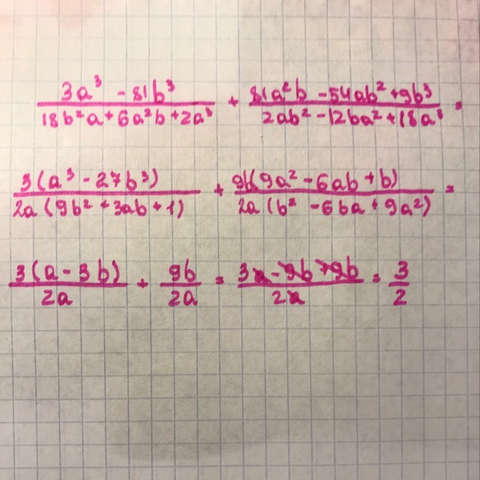 (3a³ - 81b³)/(18b²a + 6a²b + 2a³) + (81a²b - 54ab² + 9b³)/(2ab² - 12ba² + 18a³) =
(3(a³ - 27b³))/(2a(9b² + 3ab + 1)) + (9b(9a² - 6ab + b))/(2a(b² - 6ba + 9a²)) =
(3(a - 3b))/(2a) + (9b)/(2a) = (3a - 9b + 9b)/(2a) = 3/2